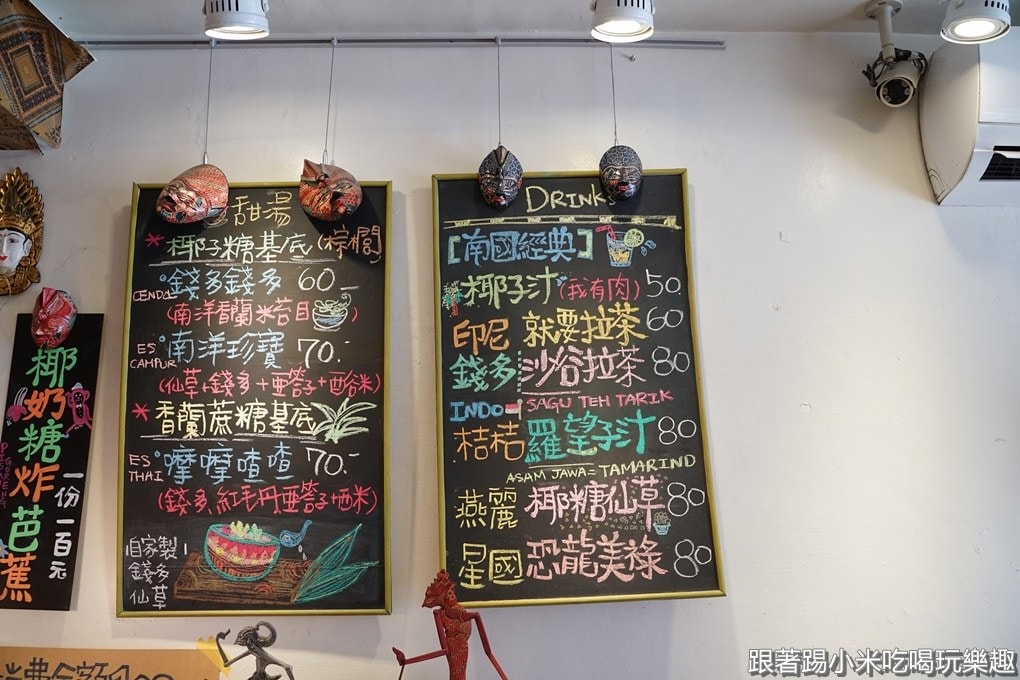 椰奶糖炸芭蕉
一份一百元
甜湯
*椰子糖基底(棕櫚)
CENDOL 錢多錢多 60
(南洋香蘭米苔目)
ES CAMPUR 南洋珍寶 70.-
(仙草+錢多+亞答子+西谷米)
*香蘭蔗糖基底
ES THAI 摩摩喳喳 70.-
(錢多、紅毛丹、亞答子+西米)
自家製!
錢多
仙草
DRINKS
[南國經典]
椰子汁(我有肉) 50
印尼 就要拉茶 60
錢多 沙谷拉茶 80
INDO SAGU TEH TARIK
桔桔 羅望子汁 80
ASAM JAWA = TAMARIND
燕麗 椰糖仙草 80
星國 恐龍美祿 80
跟著踢小米吃喝玩樂趣